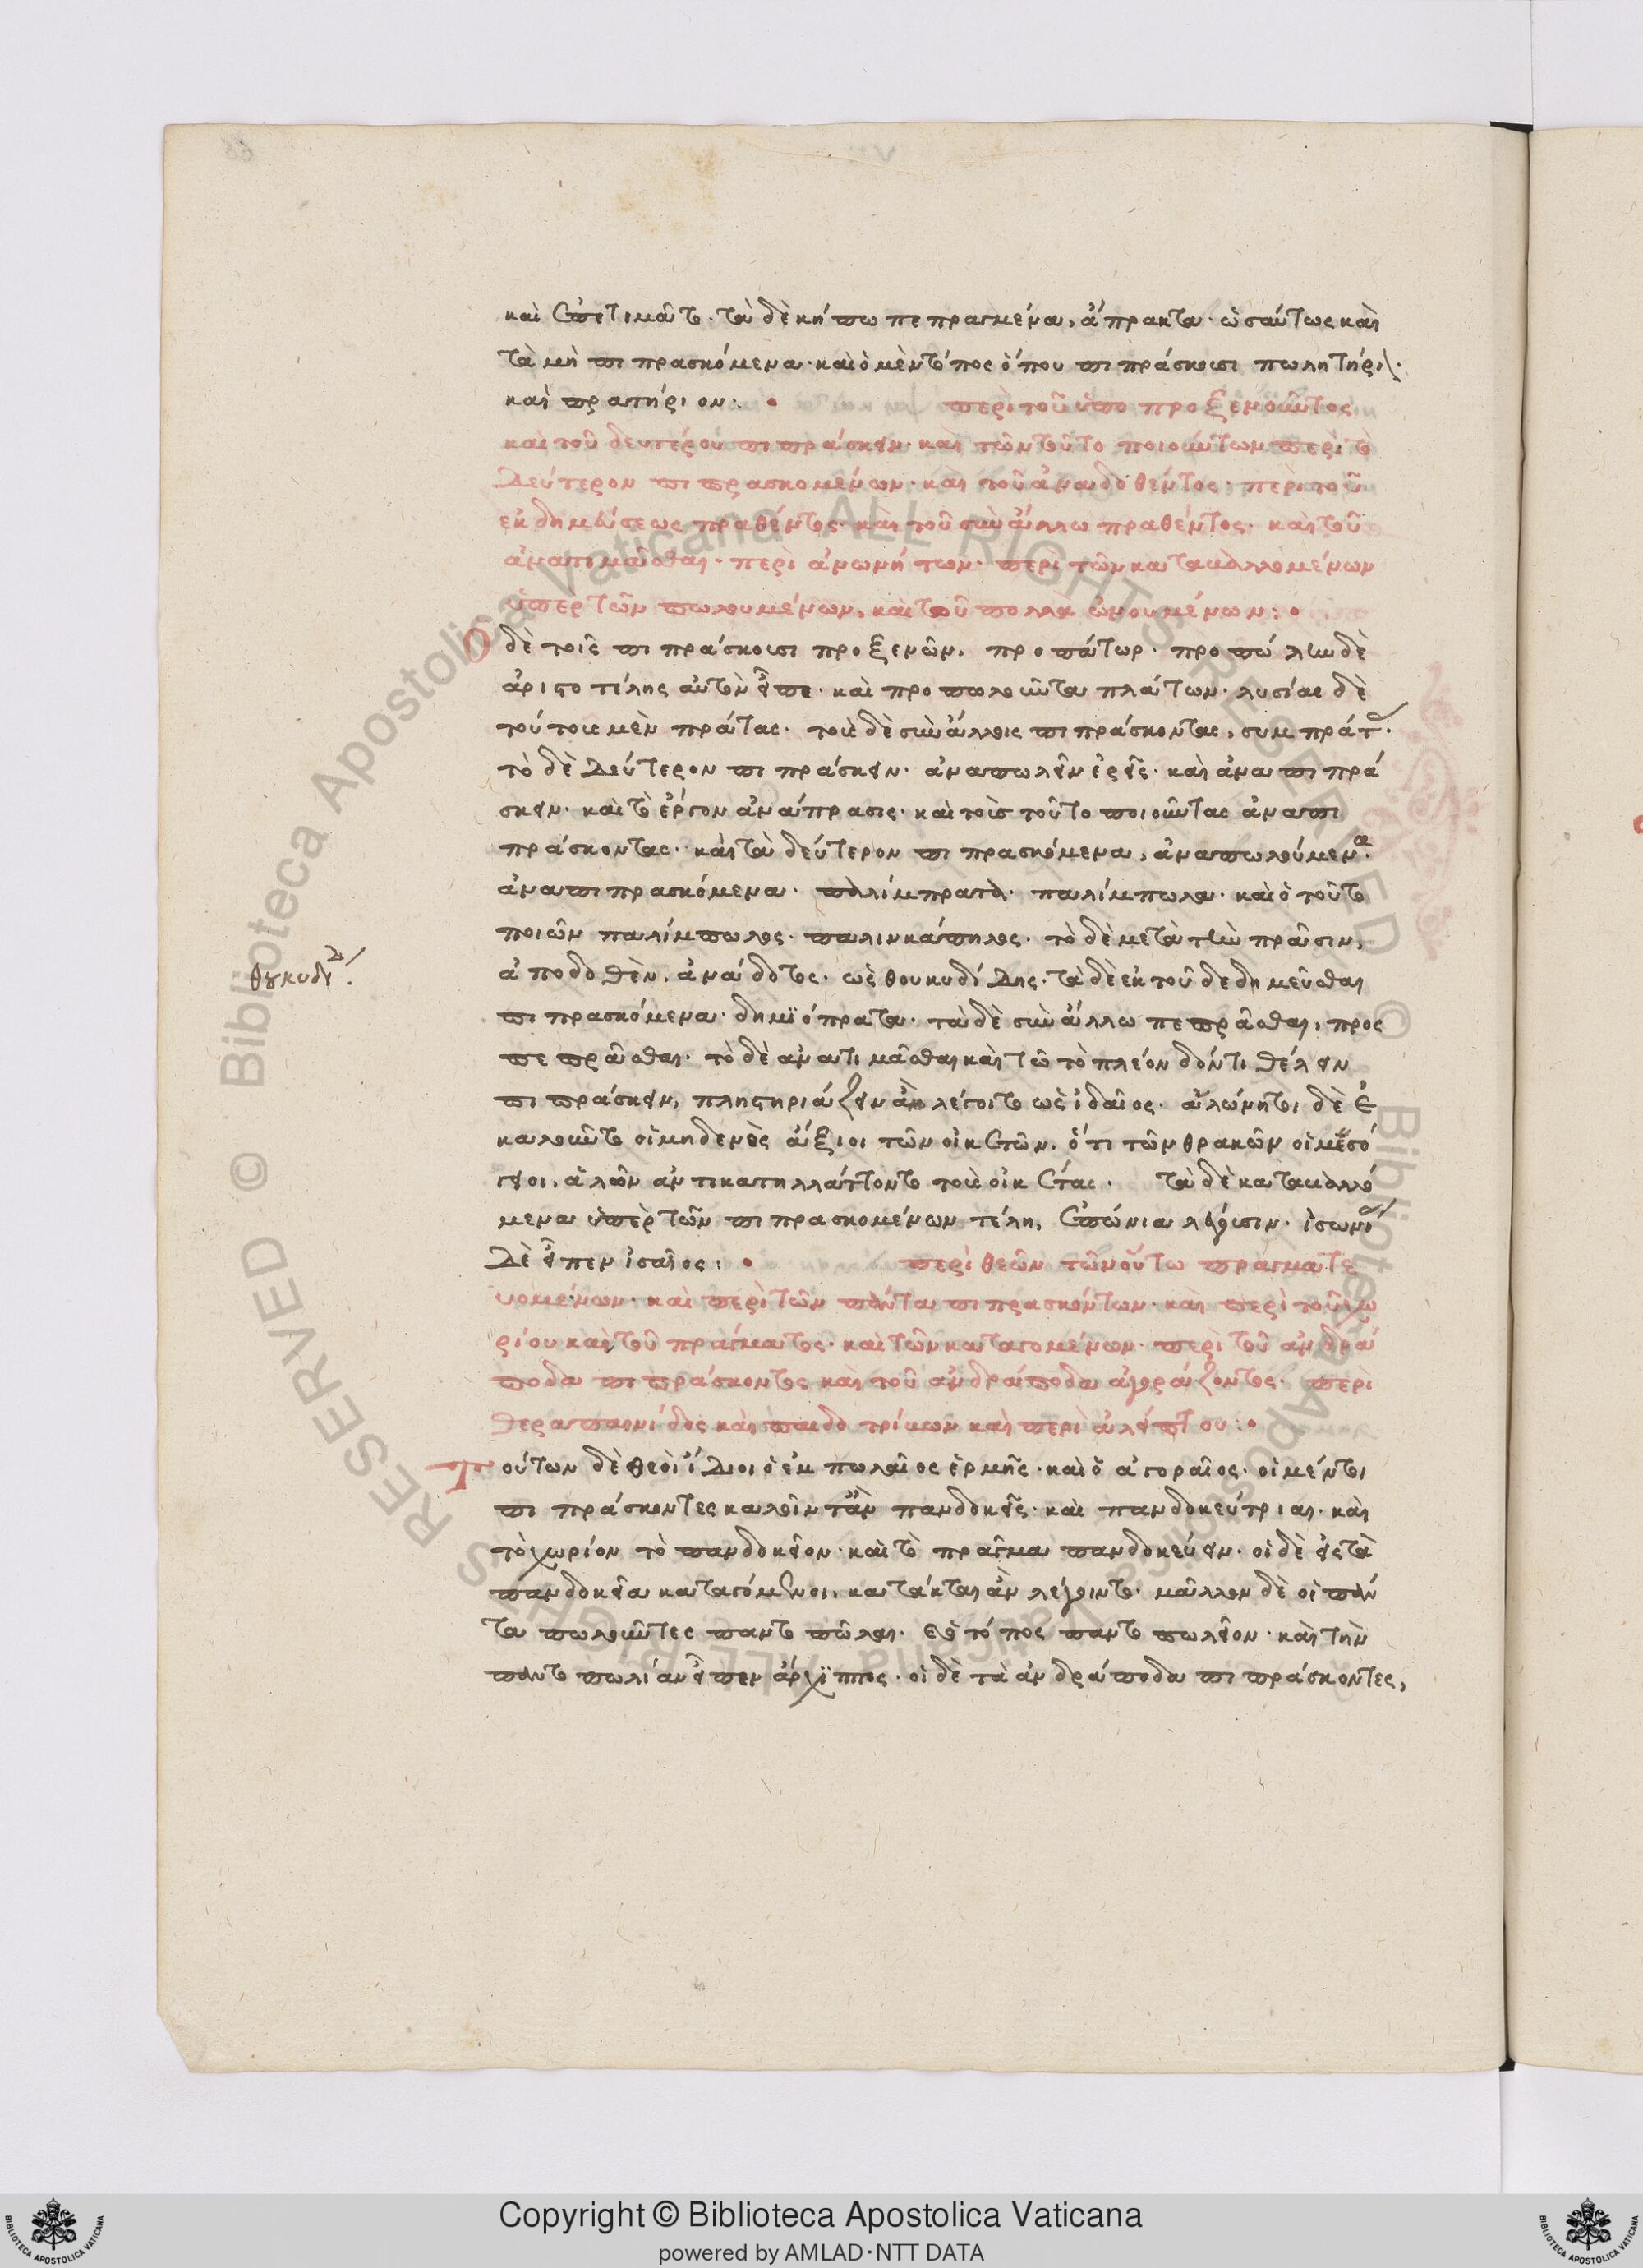 καὶ ἐπετιμᾶτο. τὰ δὲ μήπω πεπραγμένα, ἄπρακτα. ὡσαύτως καὶ
τὰ μὴ πιπρασκόμενα. καὶ ὁ μὲν τόπος ὅπου πιπράσκουσι πωλητήρι.
καὶ πρατήριον:
περὶ τοῦ ὑπο προξενοῦντος
καὶ τοῦ δευτέρου πιπράσκειν. καὶ τῶν τοῦτο ποιούντων περὶ τὸ
δεύτερον πιπρασκομένων. καὶ τοῦ ἀναδοθέντος. περὶ τοῦ
ἐκ δημεύσεως πραθέντος. καὶ τοῦ σὺν ἄλλω πραθέντος. καὶ τοῦ
ἀνατιμᾶσθαι. περὶ ἀνωνήτων. περὶ τῶν καταβαλλομένων
ὑπερ τῶν πωλουμένων, καὶ τοῦ πολλὰ ὠνουμένων:
Ὁ δὲ τοῖς πιπράσκουσι προξενῶν, προπάτωρ. προπώλην δὲ
ἀριστοτέλης αὐτὸν εἶπε. καὶ προπωλοῦντα πλάτων. λυσίας δὲ
τούτους μὲν πράτας. τοὺς δὲ σὺν ἄλλοις πιπράσκοντας, συμπράτ.
τὸ δὲ δεύτερον πιπράσκειν. ἀναπωλεῖν ἐρεῖς. καὶ ἀναπιπρά
σκειν. καὶ τὸ ἔργον ἀνάπρασις. καὶ τοὺς τοῦτο ποιοῦντας ἀναπι
πράσκοντας. καὶ τὰ δεύτερον πιπρασκόμενα, ἀναπωλούμενα.
ἀναπιπρασκόμενα. παλίμπρατα. παλίμπωλα. καὶ ὁ τοῦτο
ποιῶν παλίμπωλος. παλινκάπηλος. τὸ δὲ μετὰ τὴν πρᾶσιν,
θουκυδίδ.
ἀποδοθὲν, ἀνάδοτος. ὡς θουκυδίδης. τὰ δὲ ἐκ τοῦ δεδημεῦσθαι
πιπρασκόμενα. δημϊόπρατα. τὰ δὲ σὺν ἄλλω πεπρᾶσθαι, προς
πεπρᾶσθαι. τὸ δὲ ἀνατιμᾶσθαι καὶ τῶ τὸ πλέον δόντι θέλειν
πιπράσκειν, πληστηριάζειν ἂν λέγοιτο ὡς ἰδαῖος. ἁλώνητοι δὲ ἐ
καλοῦντο οἱ μηδενὸς ἄξιοι τῶν οἰκετῶν. ὅτι τῶν θρακῶν οἱ μεσό
γειοι, ἁλῶν ἀντικατηλλάττοντο τοὺς οἰκέτας. τὰ δὲ καταβαλλό
μενα ὑπὲρ τῶν πιπρασκομένων τέλη, ἐπώνια λέγουσιν. ἰσωνί
δὲ εἶπεν ἰσαῖος:
περὶ θεῶν τῶν οὕτω πραγματε
υομένων. καὶ περὶ τῶν πάντα πιπρασκόντων. καὶ περὶ τοῦ χω
ρίου καὶ τοῦ πράγματος. καὶ τῶν καταγομένων. περὶ τοῦ ἀνδρά
ποδα πιπράσκοντος καὶ τοῦ ἀνδράποδα ἀγοράζοντος. περὶ
θεραπαινίδος καὶ παιδοτρίβων καὶ περὶ ἀλείπτου:
Τούτων δὲ θεοὶ ἴδιοι ὁ ἐμπωλαῖος ἑρμῆς. καὶ ὁ ἀγοραῖος. οἱ μέντοι
πιπράσκοντες καλοῖντ' ἂν πανδοκεῖς. καὶ πανδοκεύτριαι. καὶ
τὸ χωρίον τὸ πανδοκεῖον. καὶ τὸ πρᾶγμα πανδοκεύειν. οἱ δὲ εἰς τὰ
πανδοκεῖα καταγόμενοι, κατάκται ἂν λέγοιντο. μᾶλλον δὲ οἱ πάν
τα πωλοῦντες παντοπῶλαι. καὶ ὁ τόπος παντοπωλεῖον. καὶ τὴν
παντοπωλίαν εἶπεν ἄρχϊππος. οἱ δὲ τὰ ἀνδράποδα πιπράσκοντες,
Copyright © Biblioteca Apostolica Vaticana
powered by AMLAD·NTT DATA